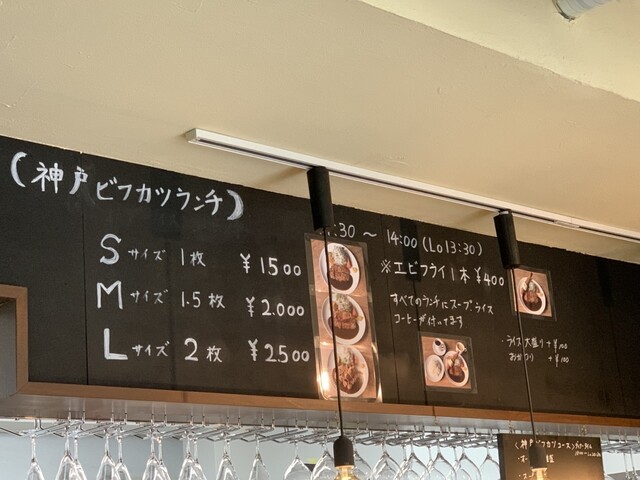 (神戸ビフカツランチ)
:30 〜 14:00 (Lo 13:30)
Sサイズ 1枚 ¥1500
Mサイズ 1.5枚 ¥2.000
Lサイズ 2枚 ¥2.500
※エビフライ1本 ¥400
すべてのランチにスープ、ライス
コーヒーが付いてます
・ライス大盛り +¥100
おかわり +¥100